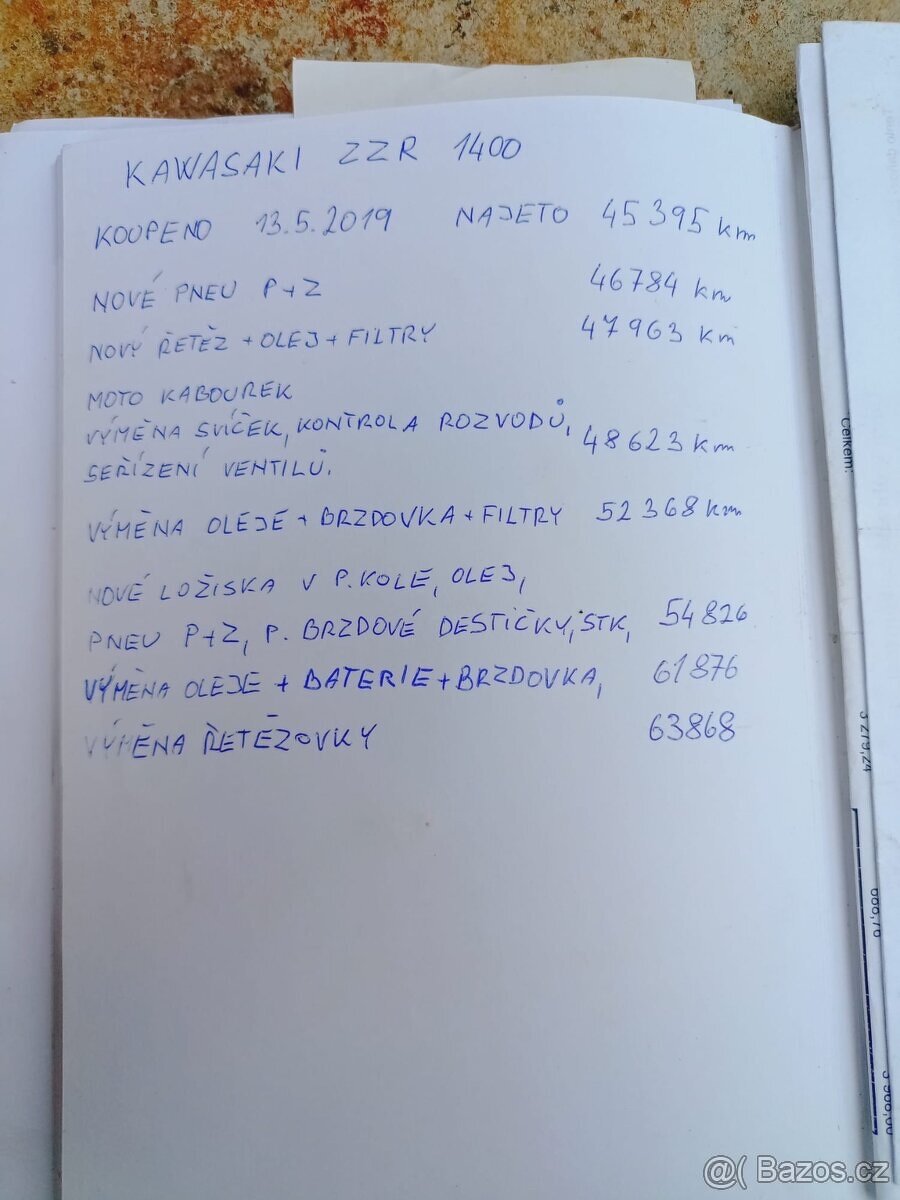 KAWASAKI ZZR 1400
KOUPENO 13.5.2019 NAJETO 45 395 km
NOVÉ PNEU P+Z 46784 km
NOVÝ ŘETĚZ + OLEJ + FILTRY 47963 km
MOTO KABOUREK
VÝMĚNA SVÍČEK, KONTROLA ROZVODŮ, 48623 km
SEŘÍZENÍ VENTILŮ.
VÝMĚNA OLEJE + BRZDOVKA + FILTRY 52368 km
NOVÉ LOŽISKA V P. KOLE, OLEJ,
PNEU P+Z, P. BRZDOVÉ DESTIČKY, STK, 54826
VÝMĚNA OLEJE + BATERIE + BRZDOVKA, 61876
VÝMĚNA ŘETĚZOVKY 63868
Celkem:
3 279,24
@( Bazos.cz